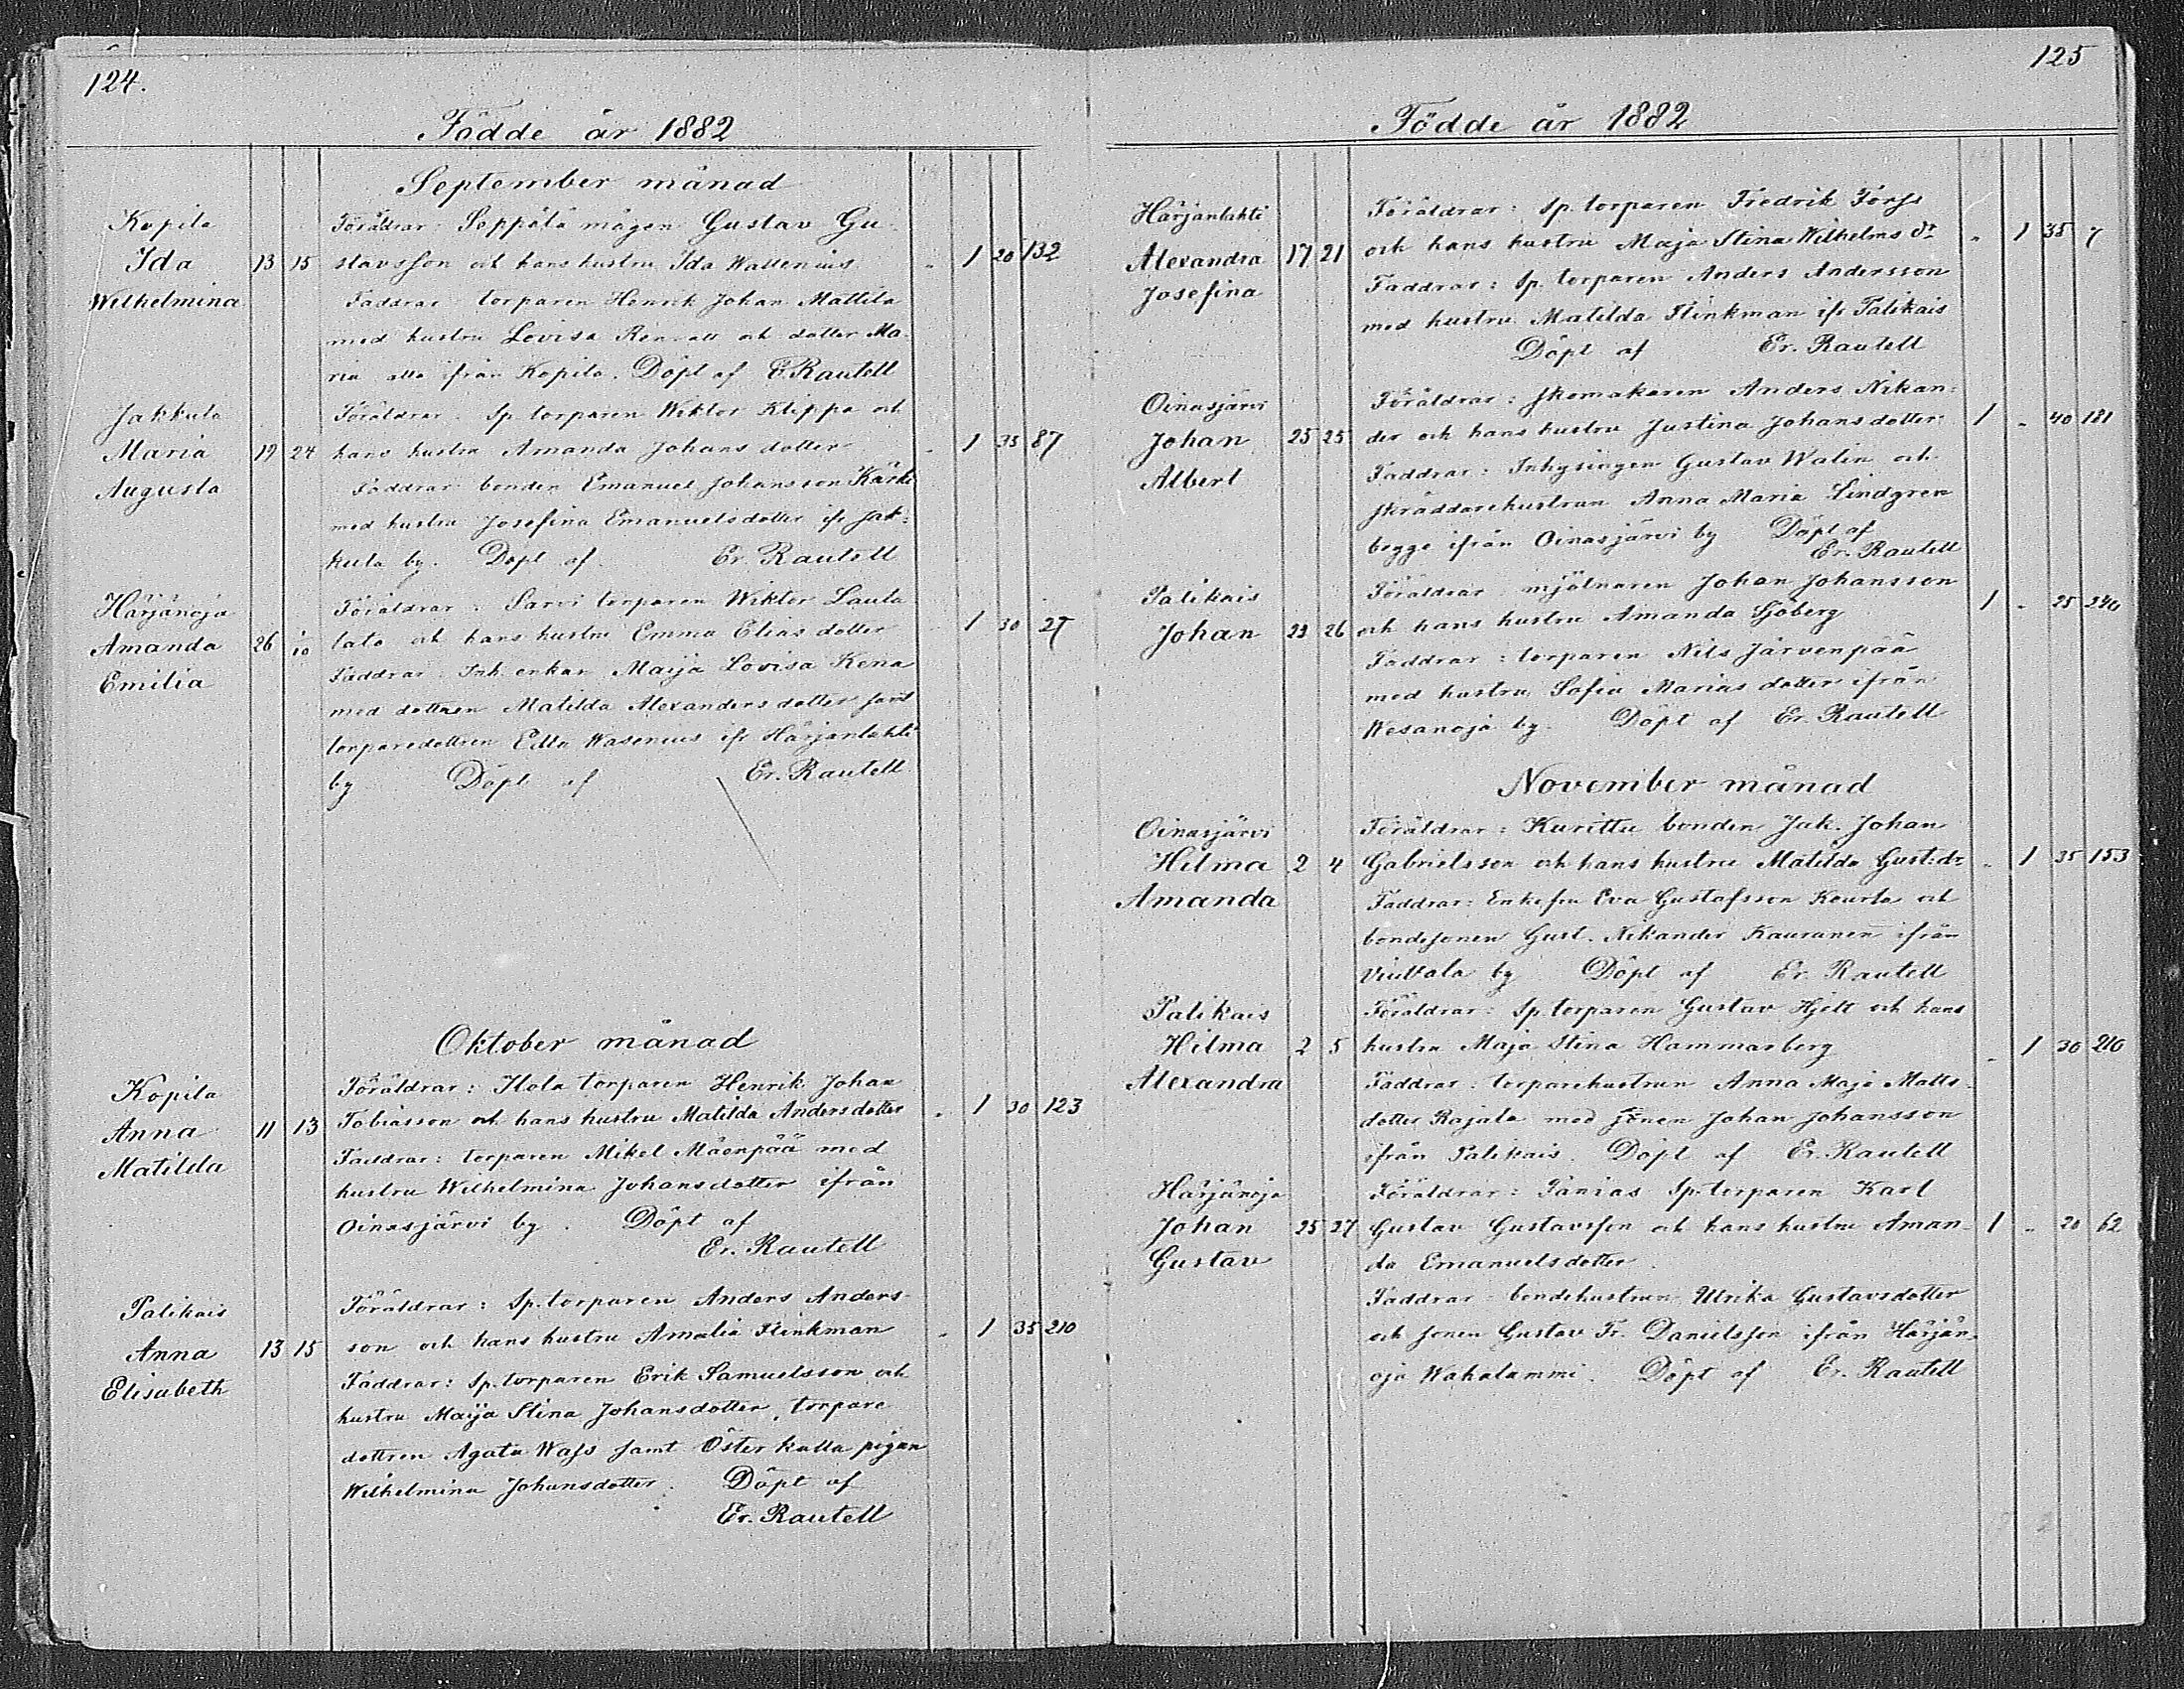 124.
Födde år 1882
September månad
Kopila
Ida
Wilhelmina
13 15
Föräldrar: Seppälä mågen Gustav Gu-
stavsson och hans hustru Ida Wallenius
" 1 20 132
Faddrar torparen Henrik Johan Mattila
med hustru Lovisa och dotter Ma-
ria alla ifrån Kopila. Döpt af E. Rautell
Jakkula
Maria
Augusta
19 24
Föräldrar Sp. torparen Wiktor Klippa och
hans hustru Amanda Johans dotter
" 1 35 87
Faddrar bonden Emanuel Johansson Kärki
med hustru Josefina Emanuelsdotter ifr Jak=
kula by. Döpt af Er. Rautell
Härjänoja
Amanda
Emilia
26 1/10
Föräldrar: Sarvi torparen Wiktor Laula
lato och hans hustru Emma Elias dotter
1 30 27
Faddrar Inh. enkan Maija Lovisa Kena
med dottren Matilda Alexanders dotter samt
torparedottren Edla Wasenius ifr Härjanlahti
by Döpt af Er. Rautell
Oktober månad
Kopila
Anna
Matilda
11 13
Föräldrar: Hola torparen Henrik Johan
Tobiasson och hans hustru Matilda Andersdotter
" 1 30 123
Faddrar: torparen Mikel Mäenpää med
hustru Wilhelmina Johansdotter ifrån
Oinasjärvi by. Döpt af
Er. Rautell
Palikais
Anna
Elisabeth
13 15
Föräldrar: Sp. torparen Anders Anders-
son och hans hustru Amalia Flinkman
" 1 35 210
Faddrar: Sp. torparen Erik Samuelsson och
hustru Maija Stina Johansdotter, torpare
dottren Agata Wass samt Österkulla pigan
Wilhelmina Johansdotter. Döpt af
Er. Rautell
125
Födde år 1882
Härjanlahti
Alexandra
Josefina
17 21
Föräldrar: Sp. torparen Fredrik Forss
och hans hustru Maja Stina Wilhelms dr
" 1 35 7
Faddrar: Sp. torparen Anders Andersson
med hustru Matilda Flinkman ifr Palikais
Döpt af Er. Rautell
Oinasjärvi
Johan
Albert
25 25
Föräldrar: skomakaren Anders Nikan=
der och hans hustru Justina Johansdotter
1 " 40 181
Faddrar: Inhysingen Gustav Walin och
skräddarehustrun Anna Maria Lindgren
begge ifrån Oinasjärvi by Döpt af
Er. Rautell
Palikais
Johan
23 26
Föräldrar mjölnaren Johan Johansson
och hans hustru Amanda Sjöberg
1 " 25 240
Faddrar: torparen Nils Järvenpää
med hustru Sofia Marias dotter ifrån
Wesanoja by. Döpt af Er. Rautell
November månad
Oinasjärvi
Hilma
Amanda
2 4
Föräldrar: Kurittu bonden Jak. Johan
Gabrielsson och hans hustru Matilda Gust:dr
" 1 35 153
Faddrar: Enkefru Eva Gustafsson Keurla och
bondesonen Gust. Nikander Kauranen ifrån
Viuvala by Döpt af Er. Rautell
Palikais
Hilma
Alexandra
2 5
Föräldrar: Sp. torparen Gustav Hjelt och hans
hustru Maja Stina Hammarberg
" 1 30 210
Faddrar: torparehustrun Anna Maja Matts-
dotter Rajala med sonen Johan Johansson
ifrån Palikais. Döpt af Er. Rautell
Härjänoja
Johan
Gustav
25 27
Föräldrar: Tanias Sp. torparen Karl
Gustav Gustavsson och hans hustru Aman-
1 " 20 62
da Emanuelsdotter.
Faddrar bondehustrun Ulrika Gustavsdotter
och sonen Gustav Fr. Danielsson ifrån Härjän-
oja Wahalammi. Döpt af Er. Rautell